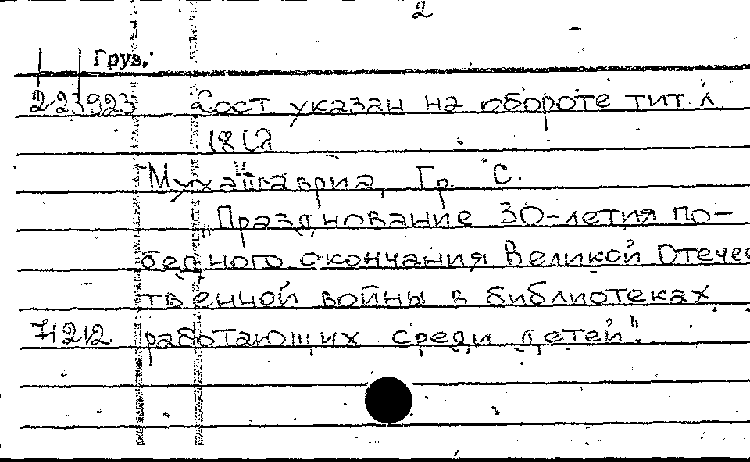 2
Груз.
223923 Сост указан на обороте тит. л.
18 (2
Мухашаврия, Гр. С.
„Празднование 30-летия по-
бедного окончания Великой Отечес
твенной войны в библиотеках
71212 работающих среди детей".